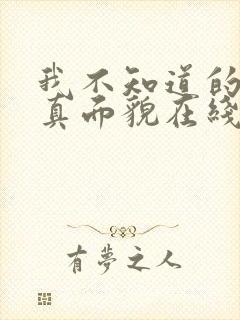 我不知道的
真面貌在綫
有夢之人